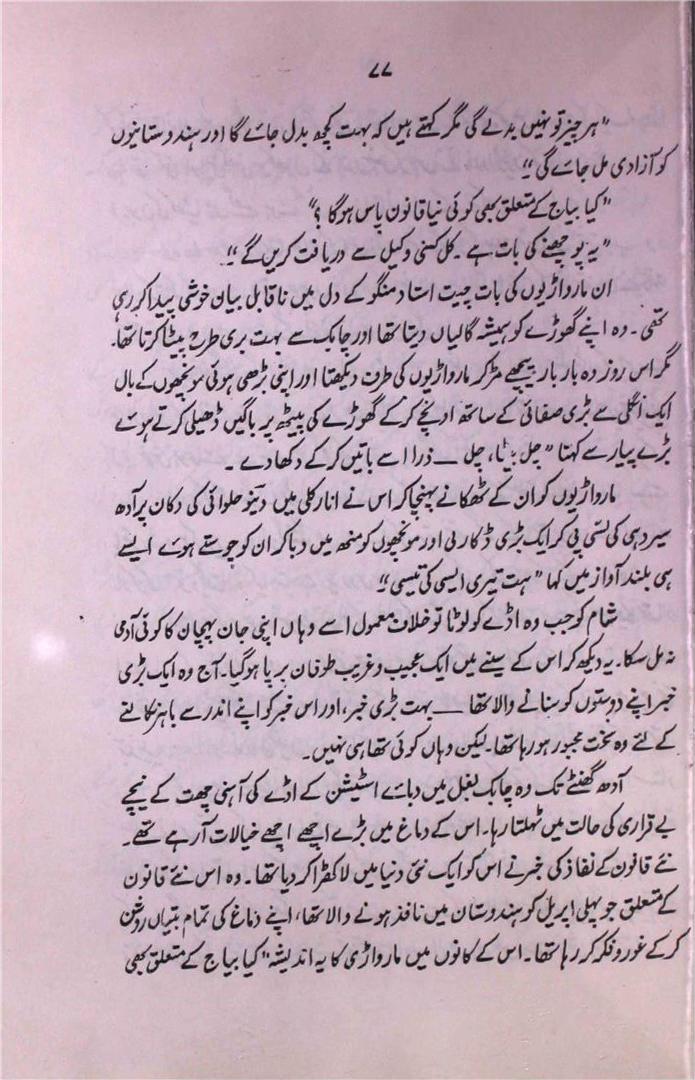 ۷۷
"ہر چیز تو نہیں بدلے گی مگر کہتے ہیں کہ بہت کچھ بدل جائے گا اور ہندوستانیوں
کو آزادی مل جائے گی"
"کیا بیاج کے متعلق بھی کوئی نیا قانون پاس ہوگا؟"
"یہ پوچھنے کی بات ہے۔ کل کسی وکیل سے دریافت کریں گے"
ان مارواڑیوں کی بات چیت استاد منگو کے دل میں ناقابل بیان خوشی پیدا کر رہی
تھی۔ وہ اپنے گھوڑے کو ہمیشہ گالیاں دیتا تھا اور چابک سے بہت بری طرح پیٹا کرتا تھا۔
مگر اس روز وہ بار بار پیچھے مڑ کر مارواڑیوں کی طرف دیکھتا اور اپنی بڑھی ہوئی مونچھوں کے بال
ایک انگلی سے بڑی صفائی کے ساتھ اونچے کر کے گھوڑے کی پیٹھ پر باگیں ڈھیلی کرتے ہوئے
بڑے پیار سے کہتا "چل بیٹا، چل — ذرا اسے باتیں کر کے دکھا دے۔
مارواڑیوں کو ان کے ٹھکانے پہنچا کر اس نے انارکلی میں دینو حلوائی کی دکان پر آدھ
سیر دہی کی لسّی پی کر ایک بڑی ڈکار لی اور مونچھوں کو منھ میں دبا کر ان کو چوستے ہوئے ایسے
ہی بلند آواز میں کہا "ہت تیری ایسی کی تیسی"
شام کو جب وہ اڈے کو لوٹا تو خلاف معمول اسے وہاں اپنی جان پہچان کا کوئی آدمی
نہ مل سکا۔ یہ دیکھ کر اس کے سینے میں ایک عجیب و غریب طوفان برپا ہو گیا۔ آج وہ ایک بڑی
خبر اپنے دوستوں کو سنانے والا تھا — بہت بڑی خبر، اور اس خبر کو اپنے اندر سے باہر نکالنے
کے لئے وہ سخت مجبور ہو رہا تھا۔ لیکن وہاں کوئی تھا ہی نہیں۔
آدھ گھنٹے تک وہ چابک بغل میں دبائے اسٹیشن کے اڈے کی آہنی چھت کے نیچے
بے قراری کی حالت میں ٹہلتا رہا۔ اس کے دماغ میں بڑے اچھے اچھے خیالات آ رہے تھے۔
نئے قانون کے نفاذ کی خبر نے اس کو ایک نئی دنیا میں لا کھڑا کر دیا تھا۔ وہ اس نئے قانون
کے متعلق جو پہلی اپریل کو ہندوستان میں نافذ ہونے والا تھا، اپنے دماغ کی تمام بتیاں روشن
کر کے غور و فکر کر رہا تھا۔ اس کے کانوں میں مارواڑی کا یہ اندیشہ "کیا بیاج کے متعلق بھی